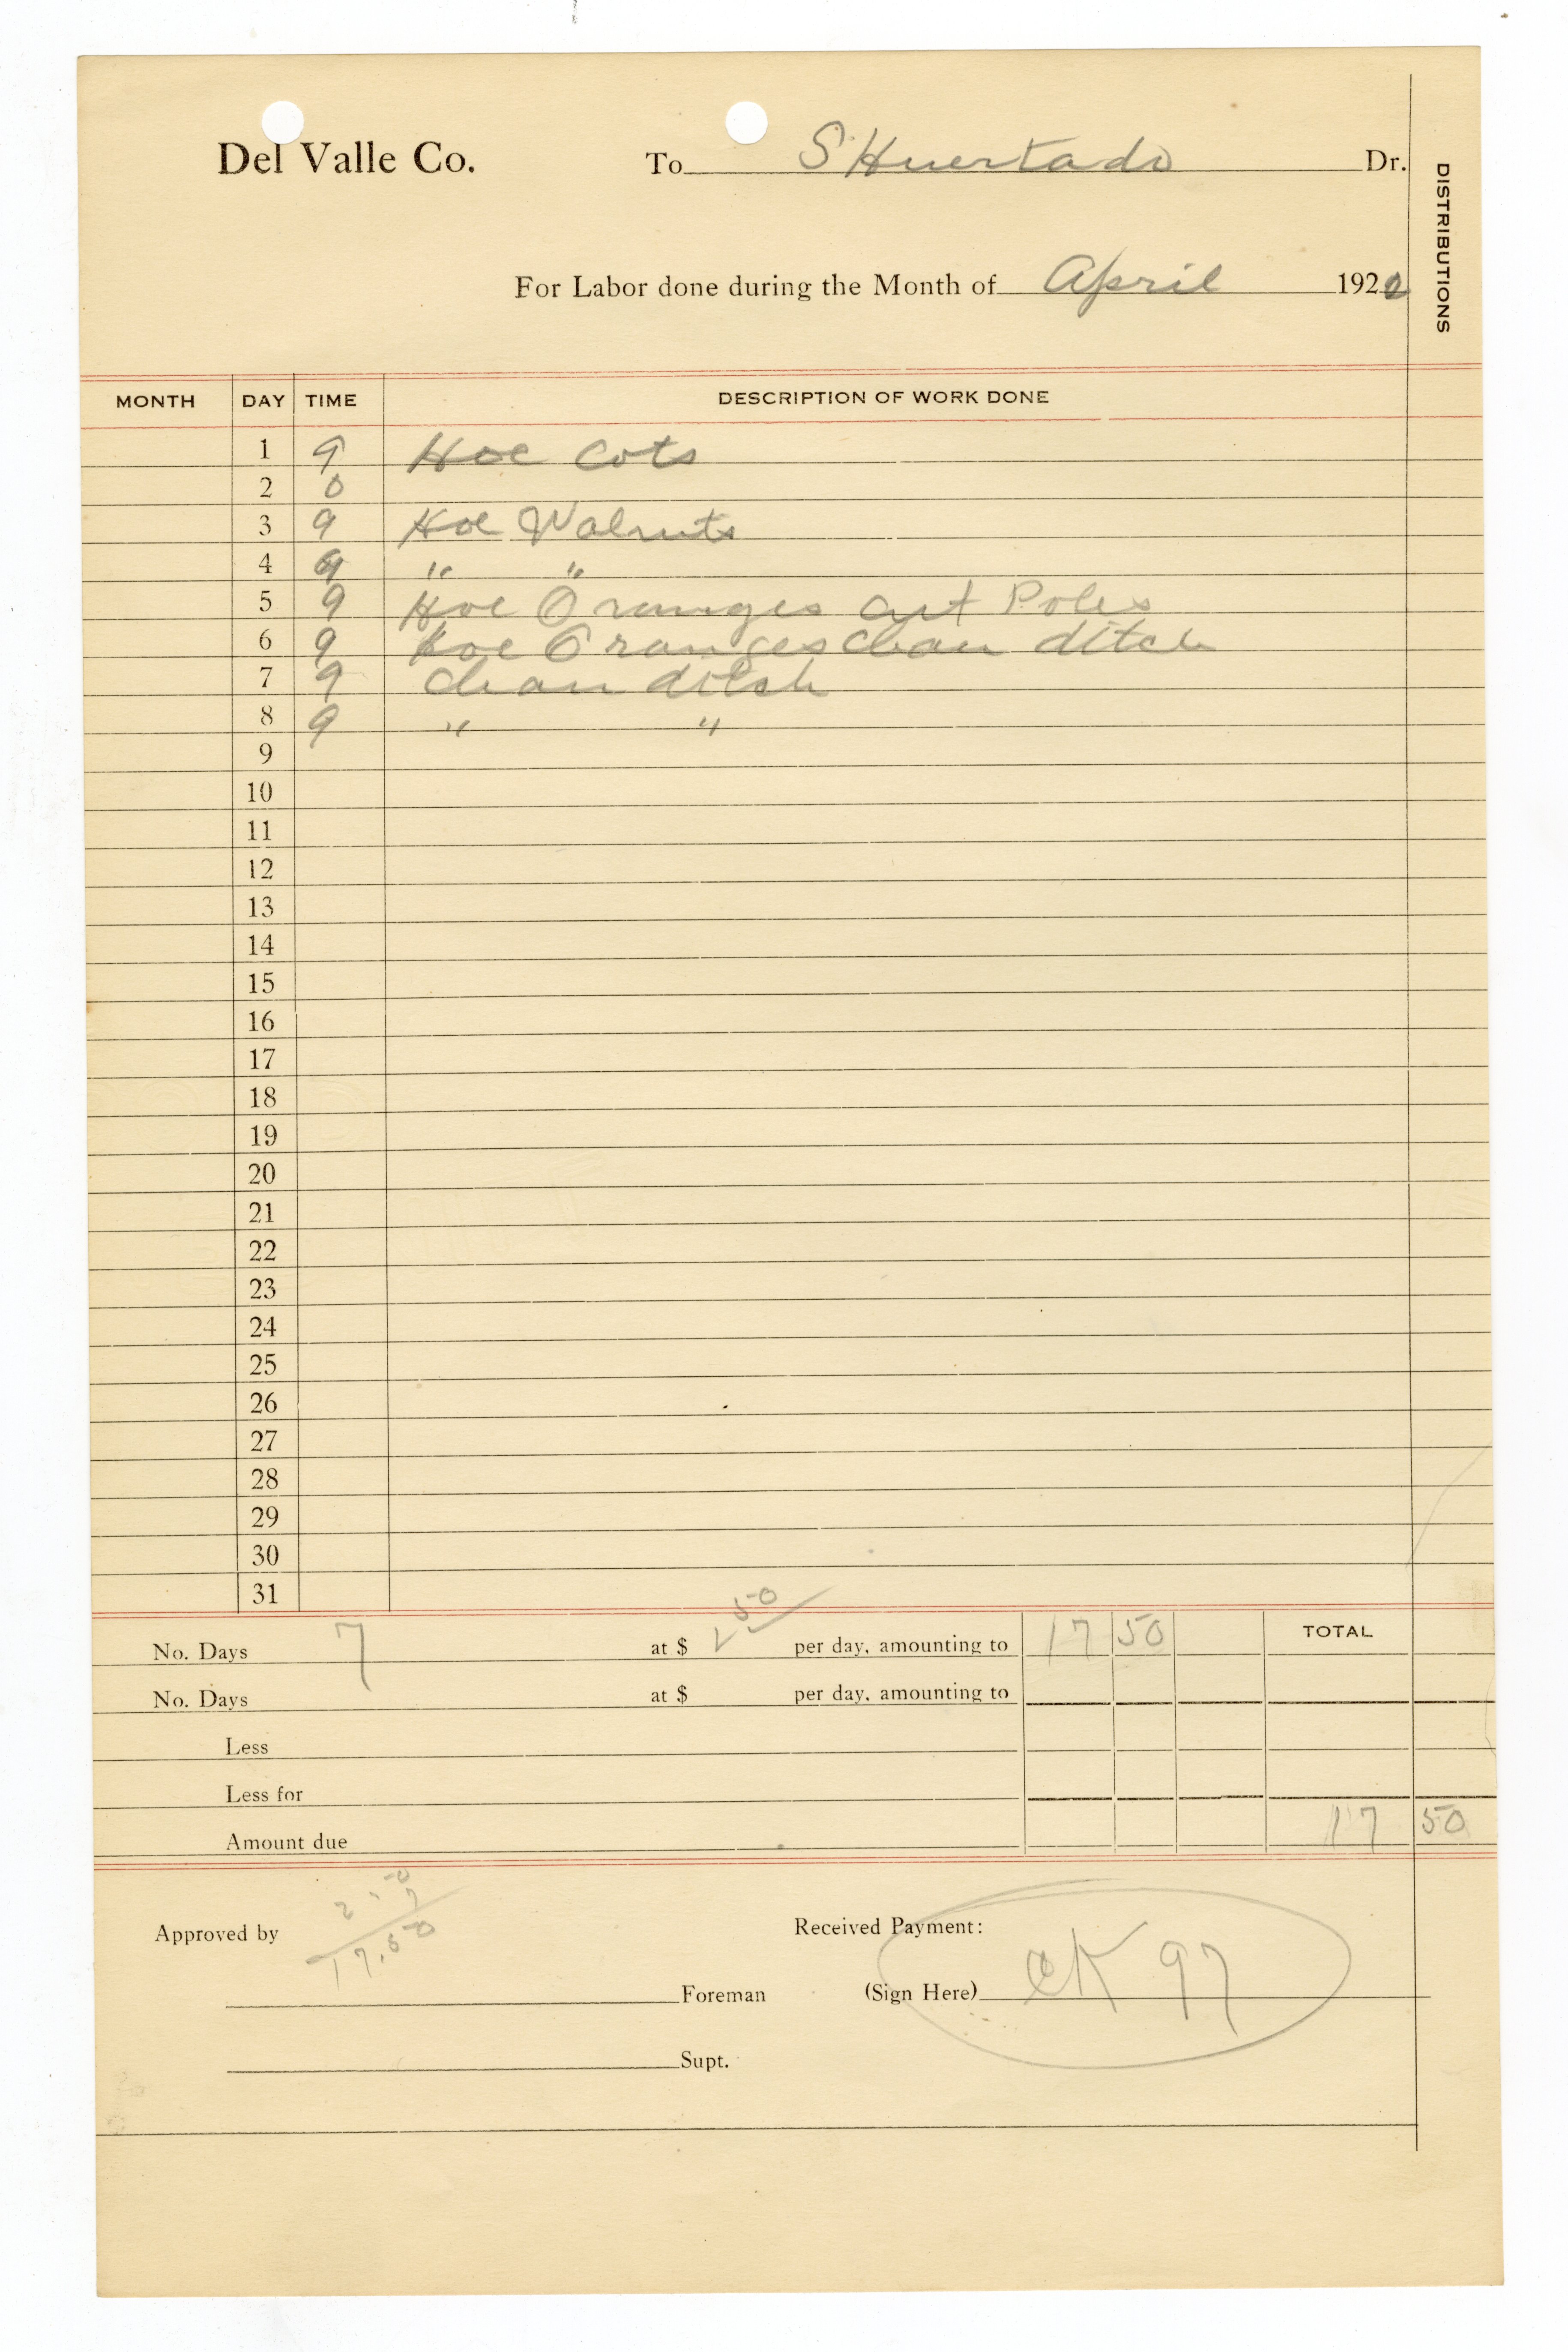 Del Valle Co. To S Huertado Dr.
DISTRIBUTIONS
For Labor done during the Month of April 1922
MONTH DAY TIME DESCRIPTION OF WORK DONE
1 9 Hoe Cots
2 0
3 9 Hoe Walnuts
4 9 " "
5 9 Hoe Oranges Cut Poles
6 9 Hoe Oranges Clean ditch
7 9 Clean ditch
8 9 " "
9
10
11
12
13
14
15
16
17
18
19
20
21
22
23
24
25
26
27
28
29
30
31
No. Days 7 at $ 2 50 per day, amounting to 17 50 TOTAL
No. Days at $ per day, amounting to
Less
Less for
Amount due 17 50
2.50
7
17.50
Approved by Received Payment:
Foreman (Sign Here) CK 97
Supt.